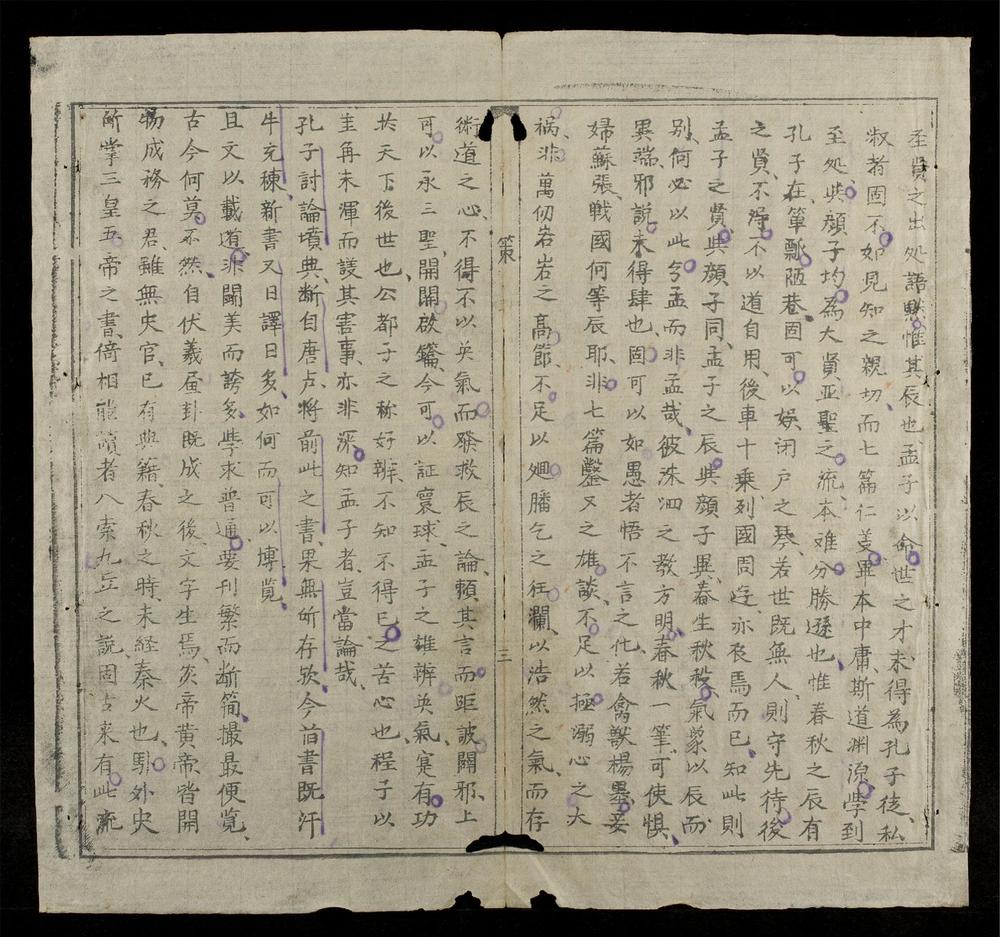 圣賢之出処語默惟其辰也孟子以命世之才未得為孔子徒私
淑者固不如見知之親切而七篇仁義畢本中庸斯道淵源学到
至処與顔子均為大賢亚聖之流本难分勝遜也惟春秋之辰有
孔子在簞瓢陋巷固可以娱闭户之琴若世既無人則守先待後
之賢不得不以道自用後車十乗列國周迬亦衣焉而已知此則
孟子之賢與顔子同孟子之辰與顔子異春生秋殺氣象以辰而
别何必以此兮孟而非孟哉彼洙泗之教方明春秋一筆可使惧
異端邪説未得肆也固可以如愚者悟不言之化若禽獸楊墨妾
婦蘇張戦國何等辰耶非七篇鑿又之雄談不足以拯溺心之大
祸非萬仞岩岩之高節不足以廻膰乞之狂瀾以浩然之氣而存
策
三
術道之心不得不以英氣而發救辰之論頼其言而距詖闢邪上
可以承三聖開開啟鑰今可以証寰球孟子之雄辨英氣寔有功
扵天下後世也公都子之称好辨不知不得已之苦心也程子以
圭角未渾而議其害事亦非深知孟子者豈當論哉
孔子討論墳典断自唐卢将前此之書果無所存欤今前書既汗
牛充棟新書又日譯日多如何而可以博覧
且文以載道非闘美而誇多学求普通要刊繁而断简撮最便覧
古今何莫不然自伏羲画卦既成之後文字生焉炎帝黄帝皆開
物成務之君雖無史官已有典籍春秋之時未経秦火也馴外史
所掌三皇五帝之書倚相能讀者八索九丘之説固古来有此流